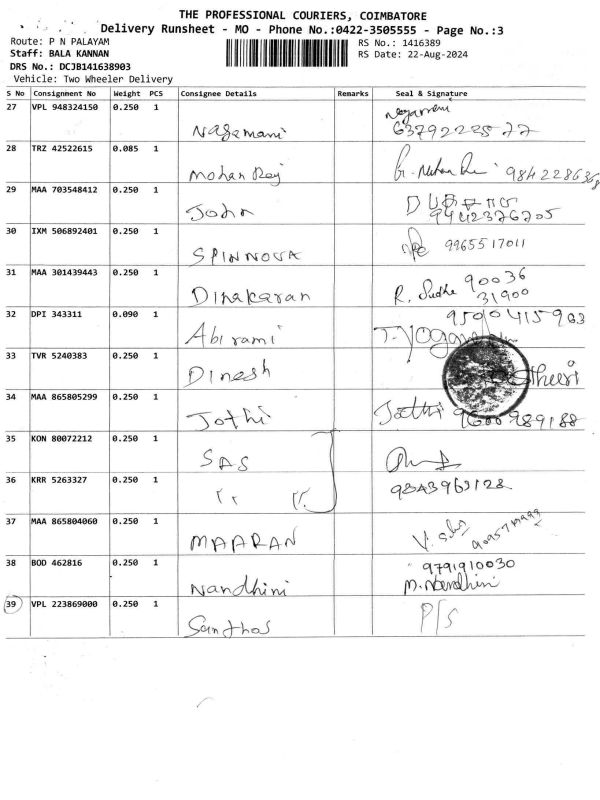 THE PROFESSIONAL COURIERS, COIMBATORE
Delivery Runsheet - MO - Phone No.:0422-3505555 - Page No.:3
Route: P N PALAYAM
RS No.: 1416389
Staff: BALA KANNAN
RS Date: 22-Aug-2024
DRS No.: DCJB141638903
Vehicle: Two Wheeler Delivery
S No Consignment No Weight PCS Consignee Details Remarks Seal & Signature
27 VPL 948324150 0.250 1
Nagamani
28 TRZ 42522615 0.085 1
Mohan Raj 9842286368
29 MAA 703548412 0.250 1
John 9442376205
30 IXM 506892401 0.250 1
SPINNOVA 9965517011
31 MAA 301439443 0.250 1
Dinakaran R. Sudha 90036
31900
32 DPI 343311 0.090 1 9500415963
Abirami
33 TVR 5240383 0.250 1
Dinesh
34 MAA 865805299 0.250 1
Jothi Jothi 9600989188
35 KON 80072212 0.250 1
SAS
36 KRR 5263327 0.250 1 9843963128
" "
37 MAA 865804060 0.250 1
MAARAN
38 BOD 462816 0.250 1 9791910030
Nandhini M. Nandhini
39 VPL 223869000 0.250 1 P/S
Santhos